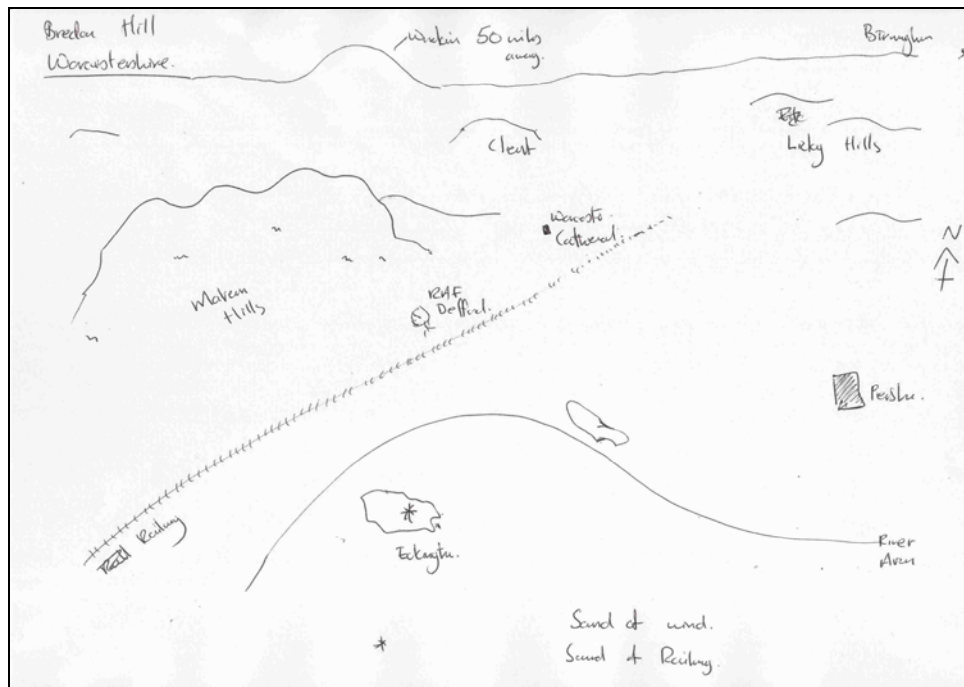 Bredon Hill
Worcestershire.
Wrekin 50 miles
away.
Birmingham
Clent
Licky Hills
Worcester
Cathedral.
Malvern
Hills
RAF
Defford.
Pershore.
Railway
Eckington.
River
Avon
N
Sound of wind.
Sound of Railway.